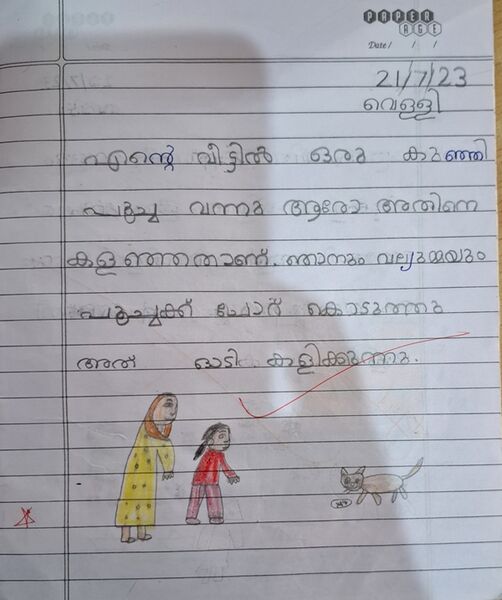 PAPER
AGE
Date / / /
21/7/23
വെള്ളി
എന്റെ വീട്ടിൽ ഒരു കുഞ്ഞി
പൂച്ച വന്നു ആരോ അതിനെ
കളഞ്ഞതാണ്. ഞാനും വല്യുമ്മയും
പൂച്ചക്ക് ചോറ് കൊടുത്തു
അത് ഓടി കളിക്കുന്നു.